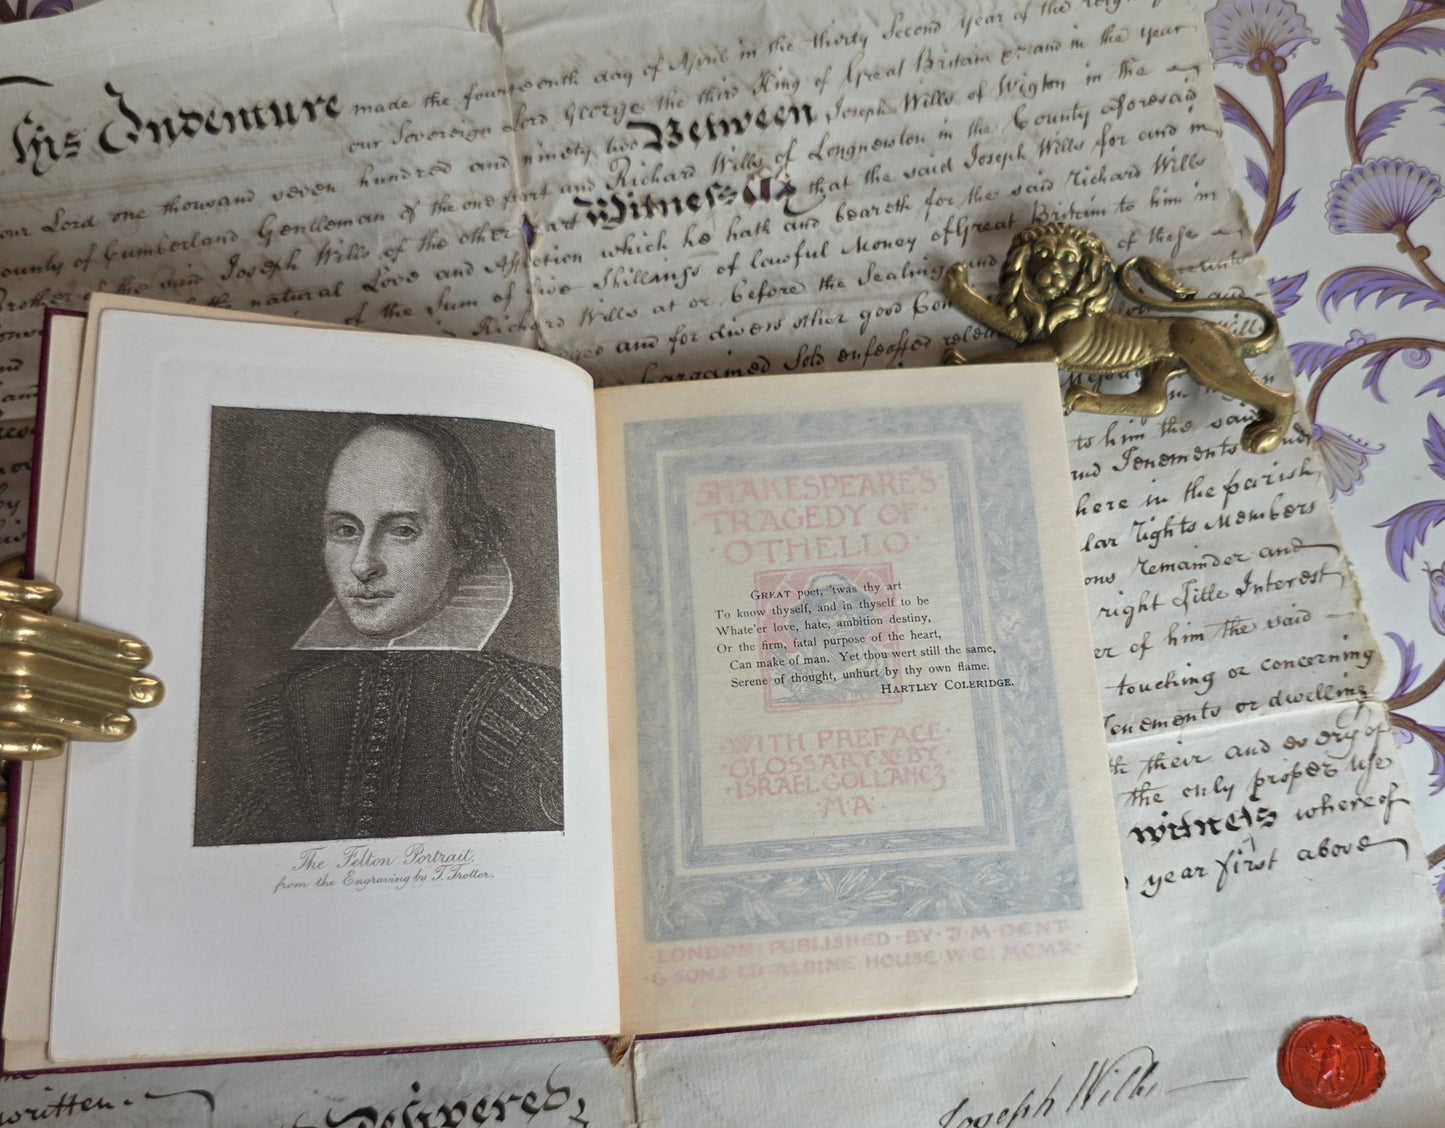 This Indenture made the fourteenth day of April in the thirty Second year of the reign of
our Sovereign Lord George the third King of Great Britain &c and in the year
our Lord one thousand seven hundred and ninety two Between Joseph Wills of Wigton in the
County of Cumberland Gentleman of the one part and Richard Wills of Longnewton in the County aforesaid
Brother of the said Joseph Wills of the other part Witnesseth that the said Joseph Wills for and in
the natural Love and Affection which he hath and beareth for the said Richard Wills
of the Sum of five Shillings of lawful Money of Great Britain to him in
Richard Wills at or before the Sealing and of these
and for divers other good
bargained Sold enfeoffed
to him the said
and Tenements
here in the parish
rights Members
remainder and
right Title Interest
of him the said
touching or concerning
Tenements or dwelling
their and every of
the only proper use
witness whereof
year first above
written.
Delivered
Joseph Wills
The Felton Portrait.
from the Engraving by T. Trotter.
SHAKESPEARE'S
TRAGEDY OF
OTHELLO
GREAT poet, 'twas thy art
To know thyself, and in thyself to be
Whate'er love, hate, ambition destiny,
Or the firm, fatal purpose of the heart,
Can make of man. Yet thou wert still the same,
Serene of thought, unhurt by thy own flame.
HARTLEY COLERIDGE.
WITH PREFACE
GLOSSARY &c BY
ISRAEL GOLLANCZ
M·A·
LONDON: PUBLISHED·BY·J·M·DENT·
& SONS LTD ALDINE HOUSE W·C: MCMX·